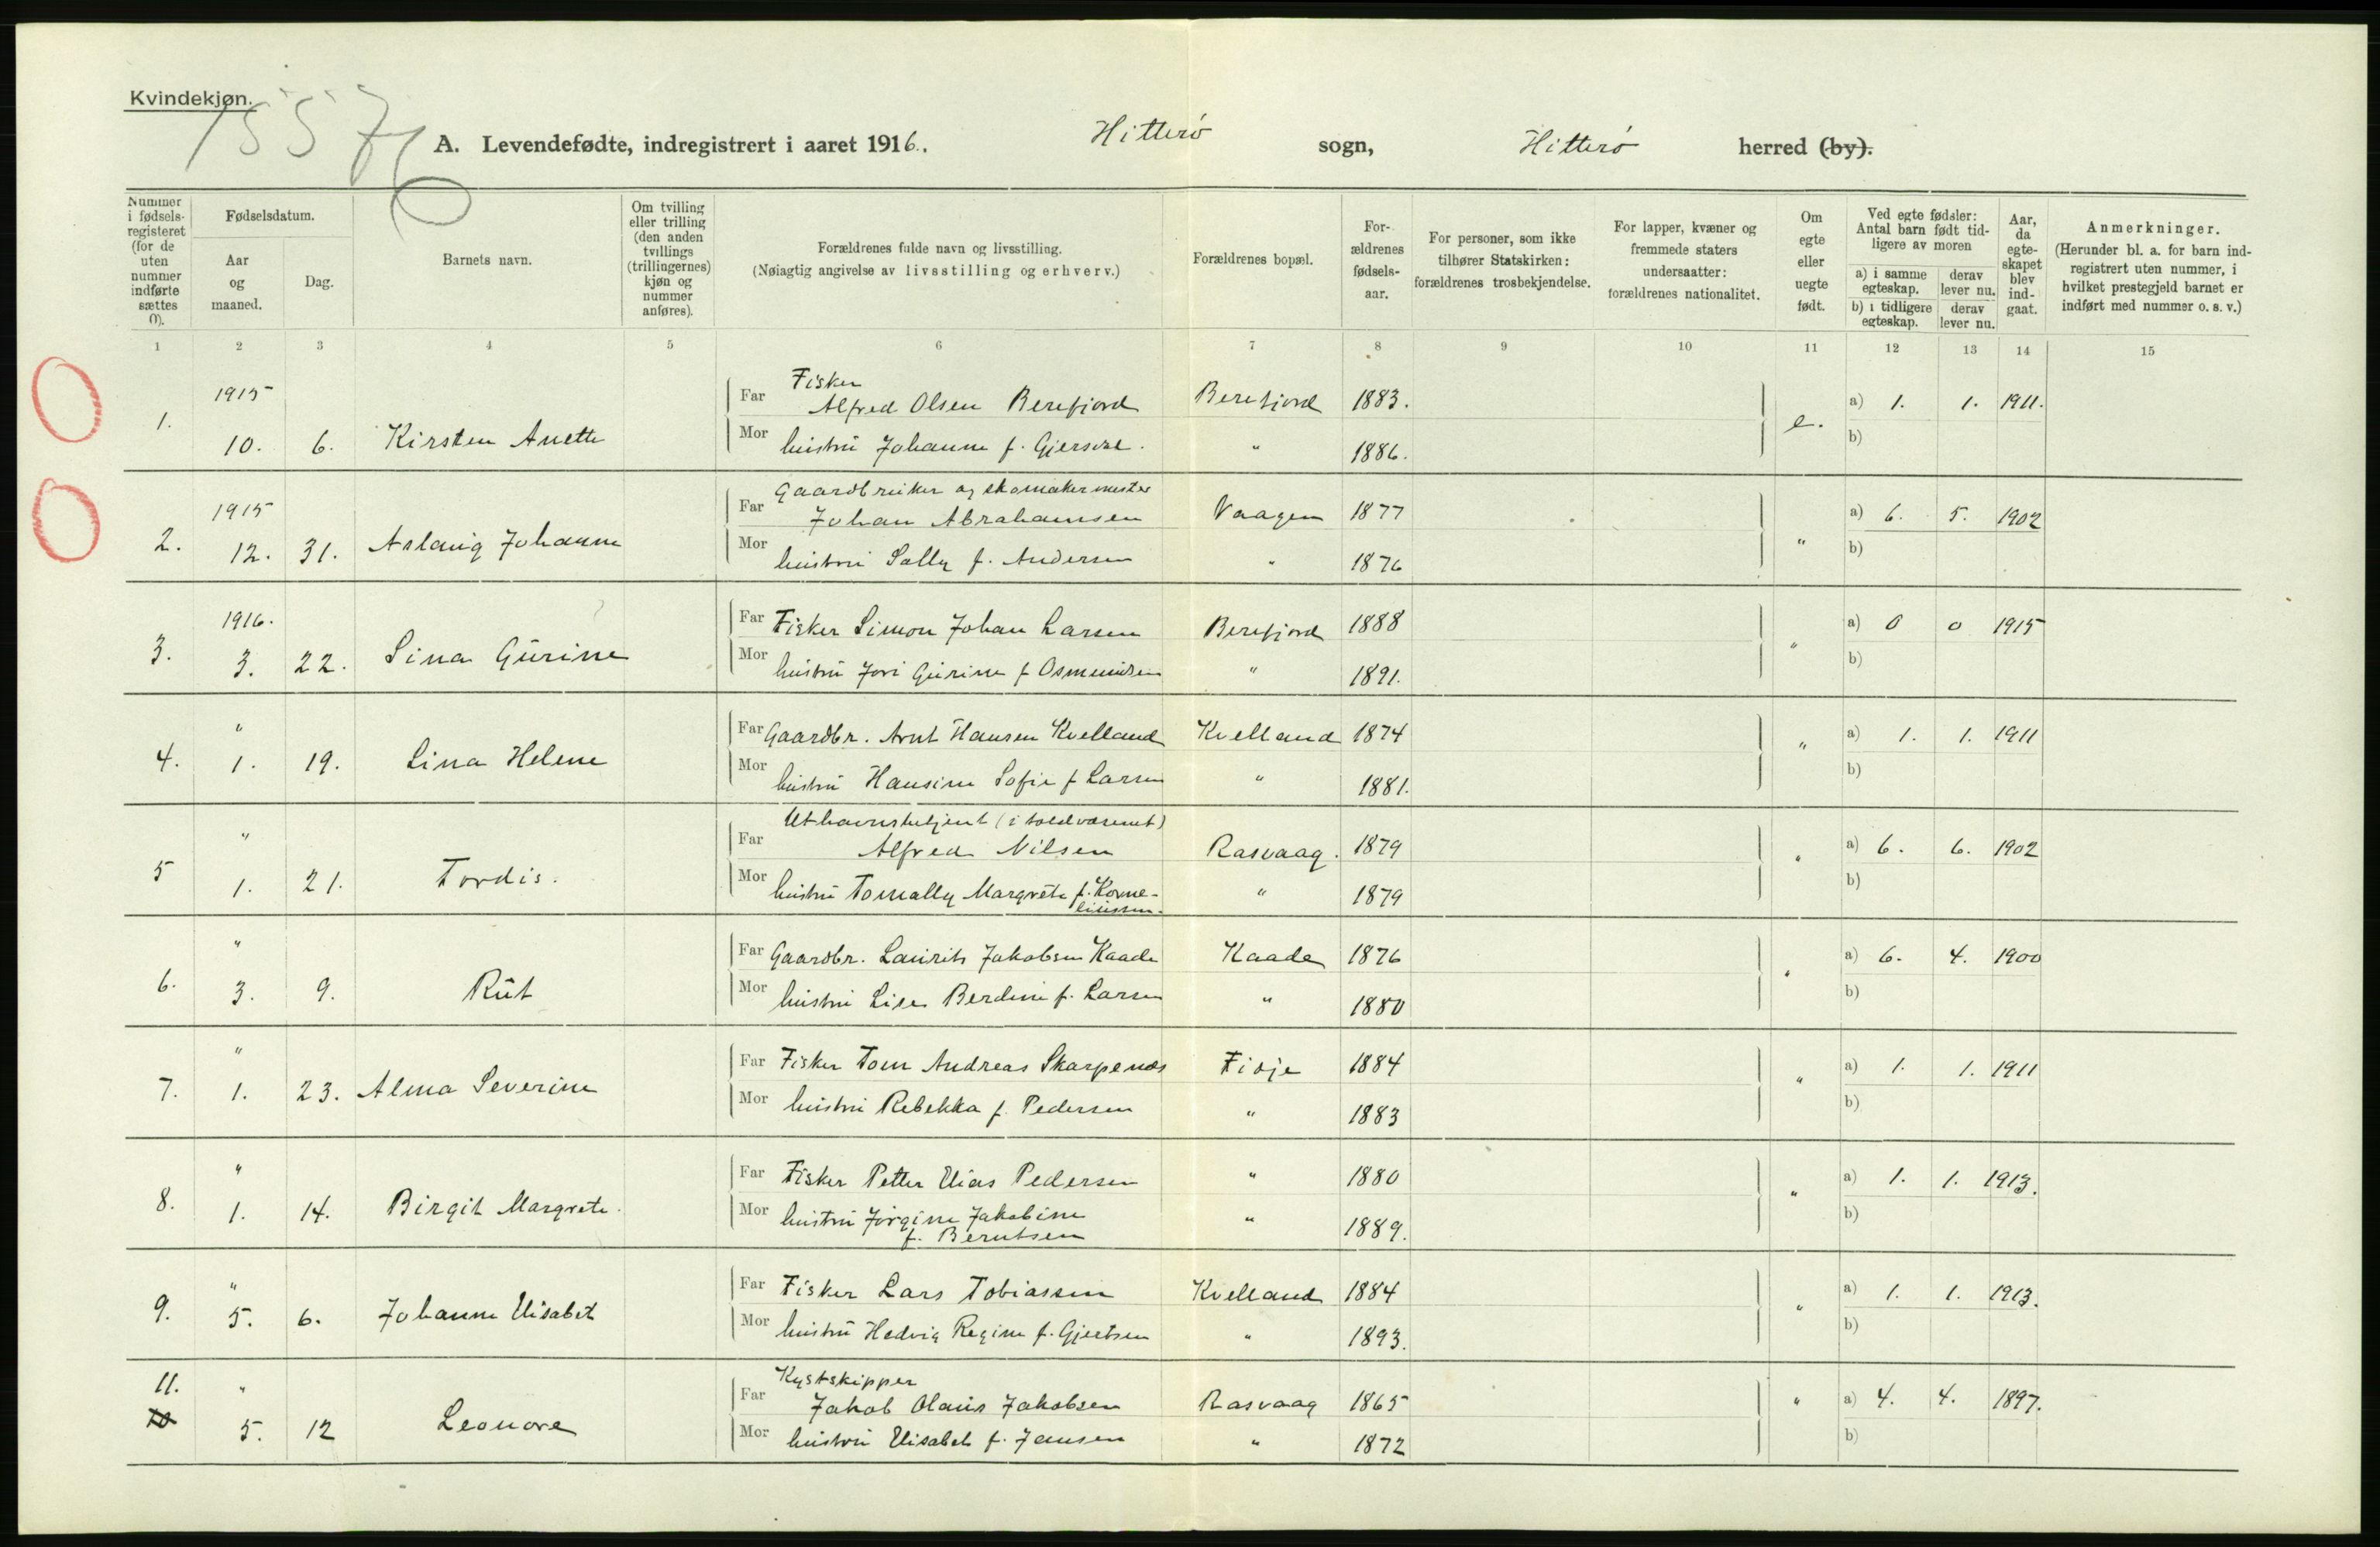 Kvindekjøn.
1557
A. Levendefødte, indregistrert i aaret 1916. Hitterø sogn, Hitterø herred (by).
Nummer i fødselsregisteret (for de uten nummer indførte sættes 0).
Fødselsdatum.
Aar og maaned.
Dag.
Barnets navn.
Om tvilling eller trilling (den anden tvillings (trillingernes) kjøn og nummer anføres).
Forældrenes fulde navn og livsstilling.
(Nøiagtig angivelse av livsstilling og erhverv.)
Forældrenes bopæl.
Forældrenes fødselsaar.
For personer, som ikke tilhører Statskirken: forældrenes trosbekjendelse.
For lapper, kvæner og fremmede staters undersaatter: forældrenes nationalitet.
Om egte eller uegte født.
Ved egte fødsler: Antal barn født tidligere av moren
a) i samme egteskap. derav lever nu.
b) i tidligere egteskap. derav lever nu.
Aar, da egteskapet blev indgaat.
Anmerkninger.
(Herunder bl. a. for barn indregistrert uten nummer, i hvilket prestegjeld barnet er indført med nummer o. s. v.)
1 2 3 4 5 6 7 8 9 10 11 12 13 14 15
1915 Fisker
1. Far Alfred Olsen Berefjord Berefjord 1883. e. a) 1. 1. 1911.
10. 6. Kirsten Anette Mor hustru Johanne f. " 1886. b)
1915 Gaardbruker og skomakermester
2. Far Johan Abrahamsen Vaagen 1877 " a) 6. 5. 1902
12. 31. Aslaug Johanne Mor hustru Sally f. Andersen " 1876 b)
1916. Far Fisker Simon Johan Larsen Berefjord 1888 " a) 0 0 1915
3. 3. 22. Sina Gurine Mor hustru Jori Gurine f Osmundsen " 1891. b)
" Far Gaardbr. Arnt Hansen Kvelland Kvelland 1874 " a) 1. 1. 1911
4. 1. 19. Lina Helene Mor hustru Hansine Sofie f Larsen " 1881. b)
" Uthavnsbetjent (i toldvæsenet)
Far Alfred Nilsen Rasvaag. 1879 " a) 6. 6. 1902
5 1. 21. Tordis. Mor hustru Tomally Margrete f. Korne- " 1879 b)
liussen.
" Far Gaardbr. Laurits Jakobsen Kaade Kaade 1876 " a) 6. 4. 1900
6. 3. 9. Rut Mor hustru Lise Berdine f. Larsen " 1880 b)
" Far Fisker Tom Andreas Skarpenes Fidje 1884 " a) 1. 1. 1911
7. 1. 23. Alma Severine Mor hustru Rebekka f. Pedersen " 1883 b)
" Far Fisker Petter Elias Pedersen " 1880 " a) 1. 1. 1913.
8. 1. 14. Birgit Margrete. Mor hustru Jørgine Jakobine " 1889. b)
f. Berntsen
" Far Fisker Lars Tobiassen Kvelland 1884 " a) 1. 1. 1913.
9. 5. 6. Johanne Elisabet Mor hustru Hedvig Regine f. Gjertsen " 1893. b)
11. " Kystskipper
Far Jakob Olaus Jakobsen Rasvaag 1865 " a) 4. 4. 1897.
10 5. 12 Leonore Mor hustru Elisabet f. Jansen " 1872 b)